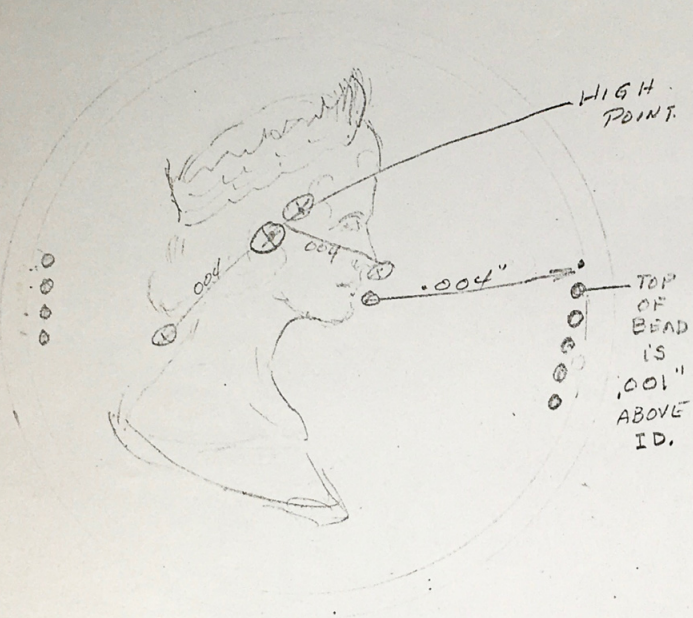 HIGH
POINT.
004
004
.004"
TOP
OF
BEAD
iS
.001"
ABOVE
ID.